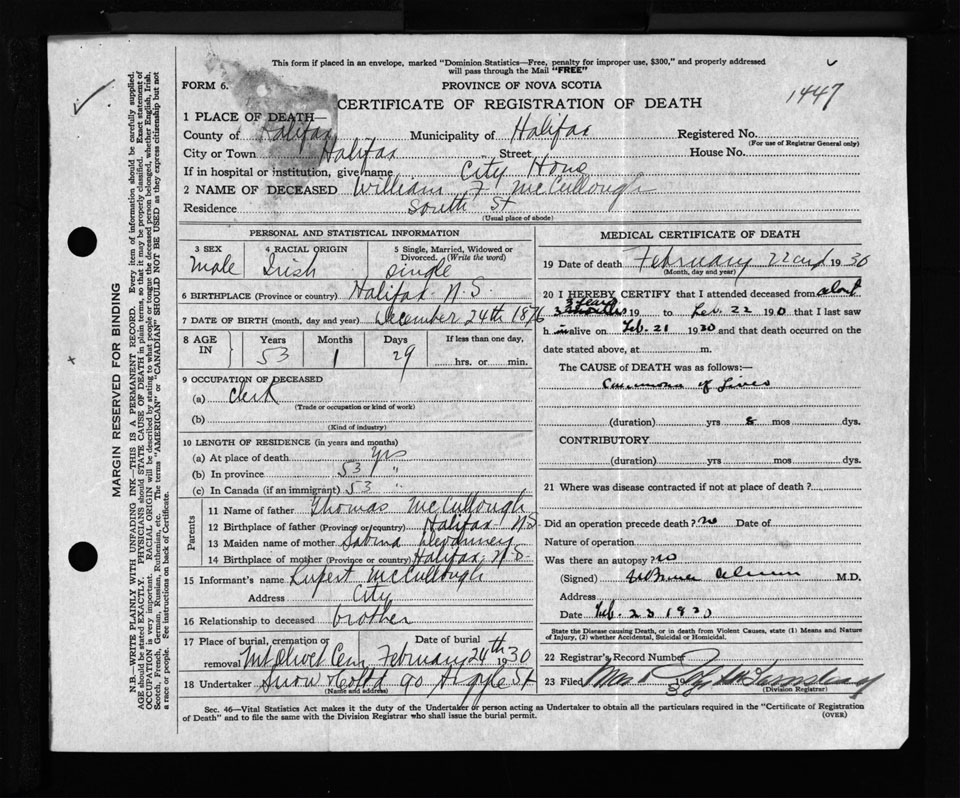 This form if placed in an envelope, marked "Dominion Statistics—Free, penalty for improper use, $300," and properly addressed
will pass through the Mail "FREE"
FORM 6.
PROVINCE OF NOVA SCOTIA
1447
CERTIFICATE OF REGISTRATION OF DEATH
1 PLACE OF DEATH—
County of Halifax Municipality of Halifax Registered No.
(For use of Registrar General only)
City or Town Halifax Street House No.
If in hospital or institution, give name City Home
2 NAME OF DECEASED William F McCullough
Residence South St
(Usual place of abode)
PERSONAL AND STATISTICAL INFORMATION
3 SEX
Male
4 RACIAL ORIGIN
Irish
5 Single, Married, Widowed or
Divorced. (Write the word)
Single
6 BIRTHPLACE (Province or country) Halifax N.S.
7 DATE OF BIRTH (month, day and year) December 24th 1876
8 AGE
IN
Years
53
Months
1
Days
29
If less than one day,
hrs. or min.
9 OCCUPATION OF DECEASED
(a) Clerk
(Trade or occupation or kind of work)
(b)
(Kind of industry)
10 LENGTH OF RESIDENCE (in years and months)
(a) At place of death yrs
(b) In province 53 "
(c) In Canada (if an immigrant) 53 "
Parents
11 Name of father Thomas McCullough
12 Birthplace of father (Province or country) Halifax N.S.
13 Maiden name of mother Sabina
14 Birthplace of mother (Province or country) Halifax N.S.
15 Informant's name Rupert McCullough
Address City
16 Relationship to deceased brother
17 Place of burial, cremation or
removal Mt Olivet Cem
Date of burial
February 24th 1930
18 Undertaker Snow & Co Ltd 90 Argyle St
(Name and address)
MEDICAL CERTIFICATE OF DEATH
19 Date of death February 22nd 1930
(Month, day and year)
20 I HEREBY CERTIFY that I attended deceased from about
3 19 to Feb. 22 1930 that I last saw
h im alive on Feb. 21 1930 and that death occurred on the
date stated above, at m.
The CAUSE of DEATH was as follows:—
Carcinoma of Liver
(duration) yrs 8 mos dys.
CONTRIBUTORY
(duration) yrs mos dys.
21 Where was disease contracted if not at place of death?
Did an operation precede death? no Date of
Nature of operation
Was there an autopsy? no
(Signed) M.D.
Address
Date Feb. 23 1930
State the Disease causing Death, or in death from Violent Causes, state (1) Means and Nature
of Injury, (2) whether Accidental, Suicidal or Homicidal.
22 Registrar's Record Number
23 Filed 19
(Division Registrar)
Sec. 46—Vital Statistics Act makes it the duty of the Undertaker or person acting as Undertaker to obtain all the particulars required in the "Certificate of Registration
of Death" and to file the same with the Division Registrar who shall issue the burial permit.
(OVER)
MARGIN RESERVED FOR BINDING
N.B.—WRITE PLAINLY WITH UNFADING INK—THIS IS A PERMANENT RECORD. Every item of information should be carefully supplied.
AGE should be stated EXACTLY. PHYSICIANS should STATE CAUSE OF DEATH in plain terms, so that it may be properly classified. Exact statement of
OCCUPATION is very important. RACIAL ORIGIN will be described by stating to what people or tongue the deceased person belonged, whether English, Irish,
Scotch, French, German, Russian, Ruthenian, etc. The terms "AMERICAN" or "CANADIAN" SHOULD NOT BE USED as they express citizenship but not
a race or people. See instructions on back of Certificate.